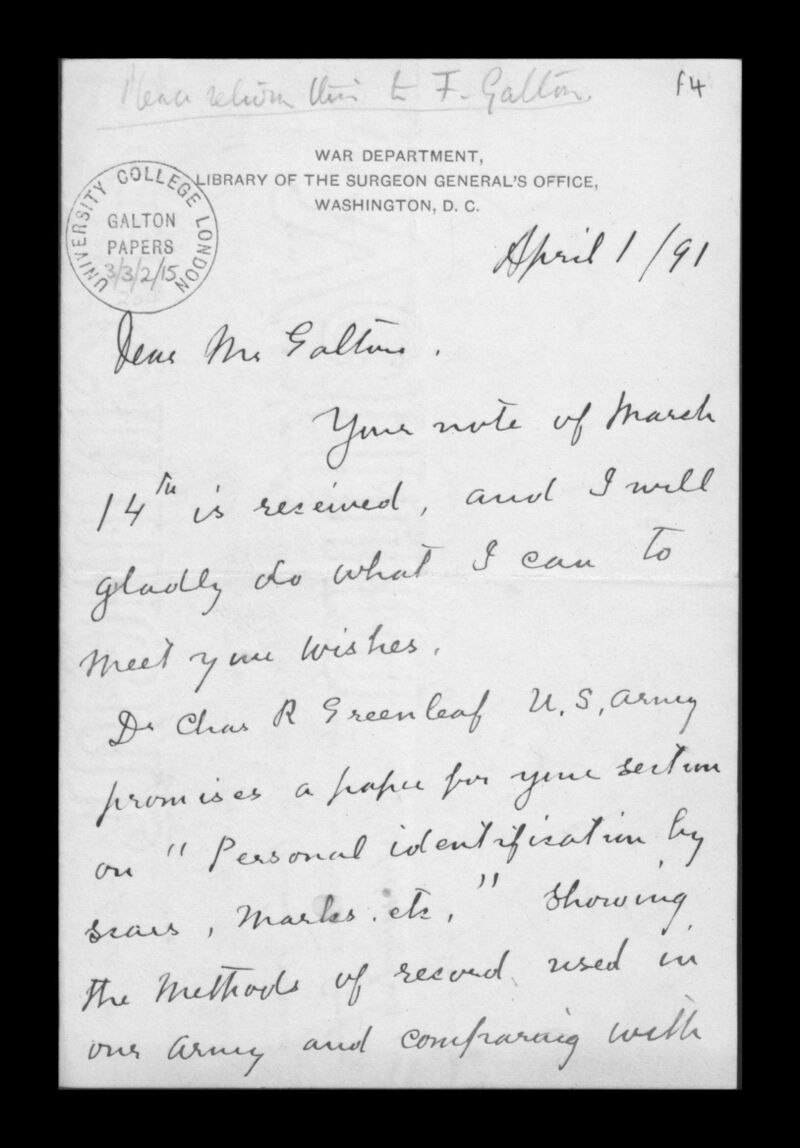 Please return this to F. Galton.
f4
WAR DEPARTMENT,
LIBRARY OF THE SURGEON GENERAL'S OFFICE,
WASHINGTON, D. C.
UNIVERSITY COLLEGE LONDON
GALTON
PAPERS
3/3/2/15
April 1/91
Dear Mr Galton.
Your note of March
14th is received, and I will
gladly do what I can to
meet your wishes.
Dr Chas R Greenleaf U.S. Army
promises a paper for your section
on "Personal identification by
scars, marks. etc," showing
the methods of record used in
our army and comparing with